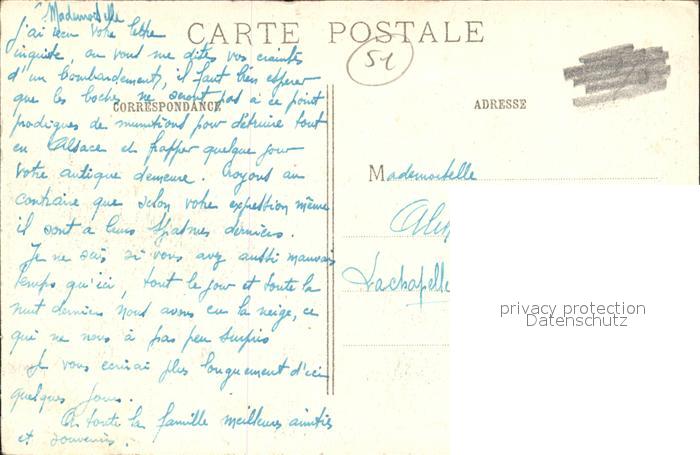 Mademoiselle
j'ai reçu votre lettre
CARTE POSTALE
51
inquiète, ou vous me dites vos craintes
d'un bombardement, il faut bien espérer
que les boches ne seront pas à ce point
CORRESPONDANCE
ADRESSE
prodigues de munitions pour détruire tout
en Alsace et frapper quelque jour
votre antique demeure. Croyons au
contraire que selon votre expression même
il sont a leurs spasmes derniers.
Je ne sais si vous avez aussi mauvais
temps qu'ici, tout le jour et toute la
nuit dernière nous avons eu la neige, ce
qui ne nous à pas peu surpris
Je vous écrirai plus longuement d'ici
quelques jours.
A toute la famille meilleures amitiés
et souvenirs.
Mademoiselle
Lachapelle
privacy protection
Datenschutz